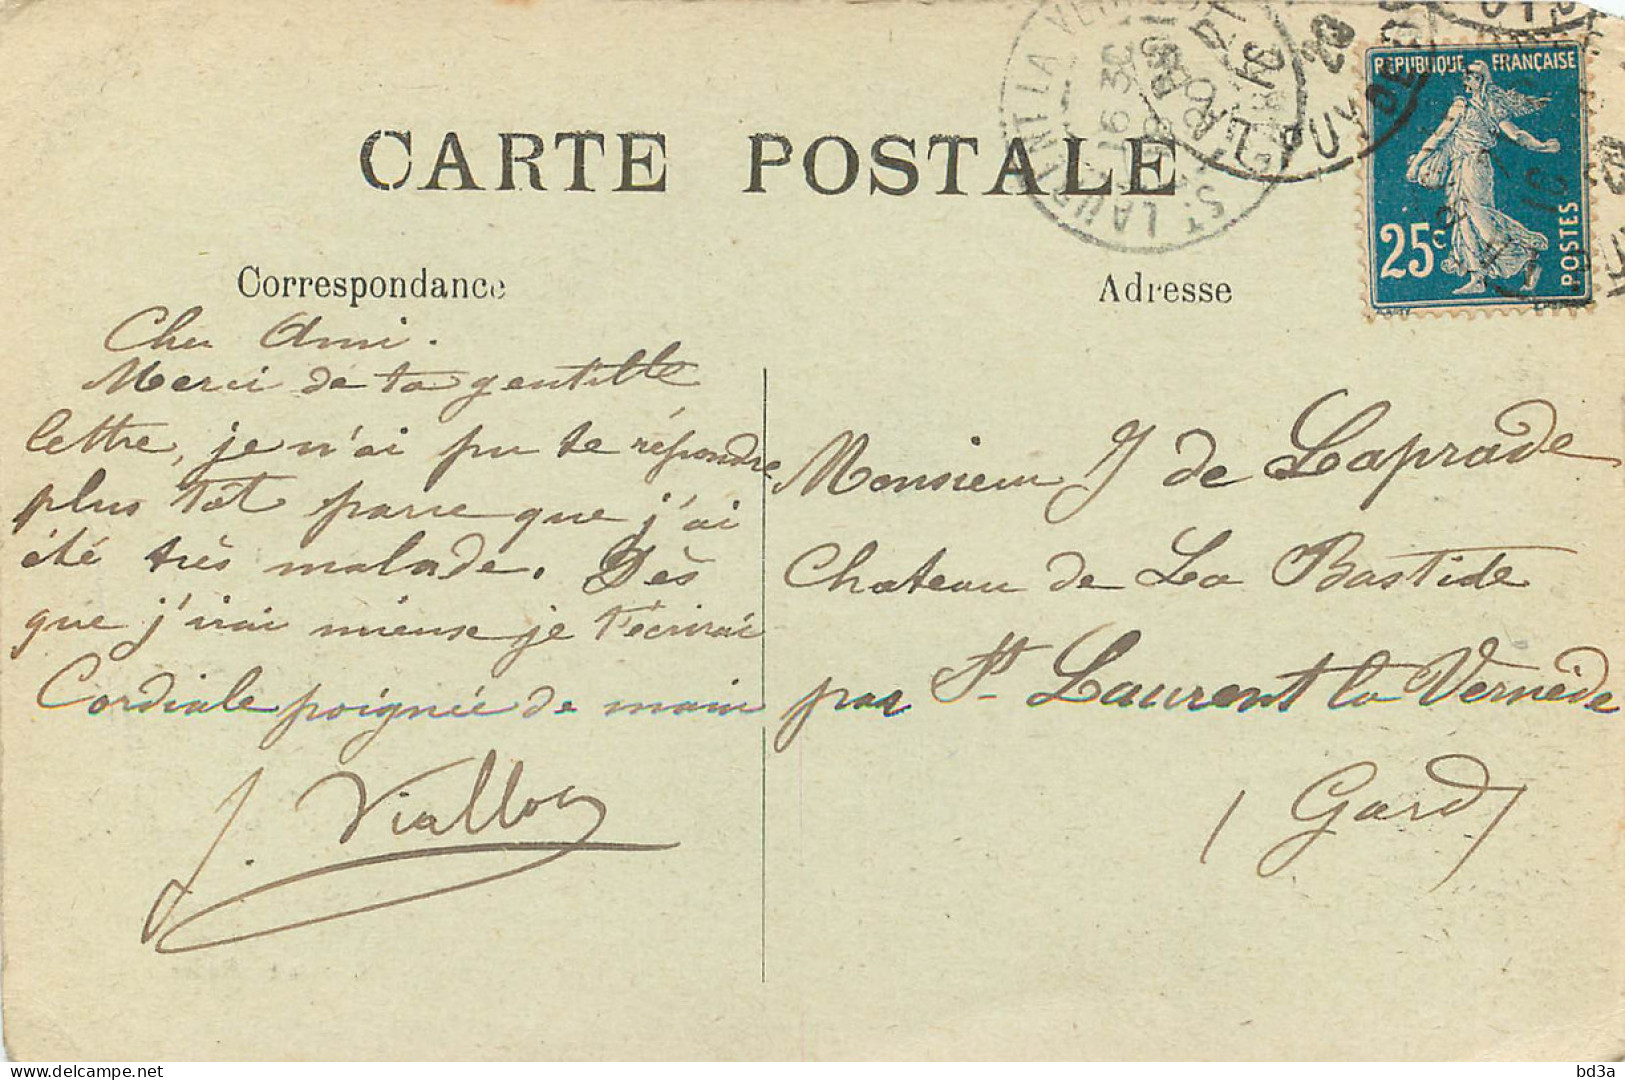 CARTE POSTALE
Correspondance
Adresse
REPUBLIQUE FRANÇAISE
25c
POSTES
ST LAURENT LA VE
16 30
PUY DE D
Cher Ami.
Merci de ta gentille
lettre, je n'ai pu te répondre
plus tôt parce que j'ai
été très malade. Dès
que j'irai mieux je t'écrirai
Cordiale poignée de main
J. Viallon
Monsieur J de Laprade
Chateau de La Bastide
par St Laurent la Vernède
(Gard)
delcampe.net
bd3a